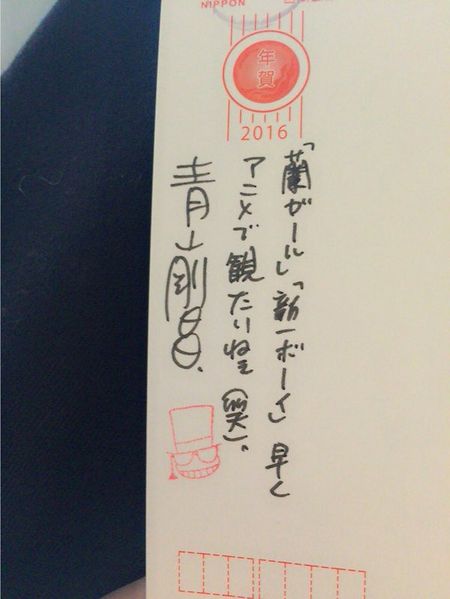 NIPPON
年賀
2016
「蘭ガール」「新一ボーイ」早く
アニメで観たいねぇ（笑）。
青山剛昌.